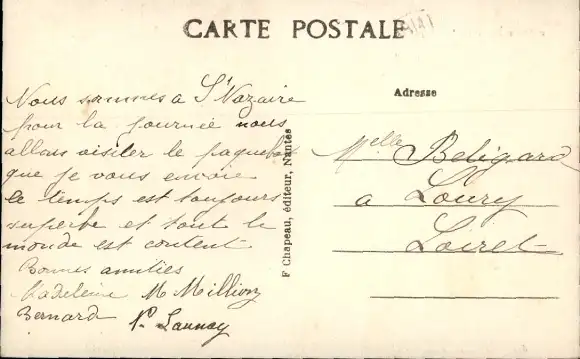 CARTE POSTALE
Nous sommes a St Nazaire
pour la journée nous
allons visiter le paquebot
que je vous envoie
le temps est toujours
superbe et tout le
monde est content
Bonnes amitiés
Madeleine M Million
Bernard P. Launay
F Chapeau, éditeur, Nantes
Adresse
Melle Beligard
a Loury
Loiret